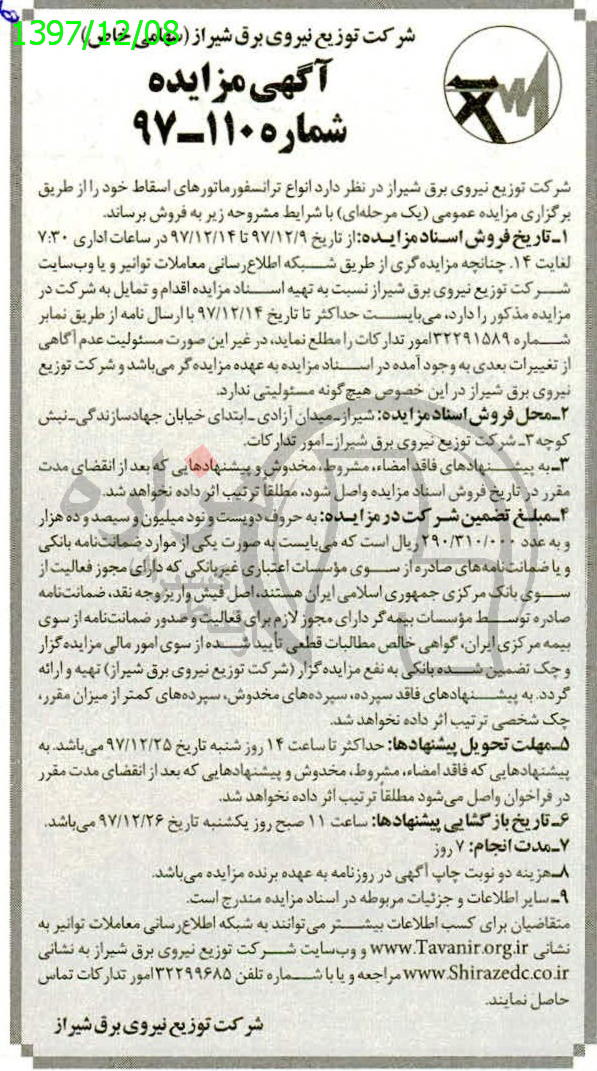 1397/12/08
شرکت توزیع نیروی برق شیراز (سهامی خاص)
آگهی مزایده
شماره ۱۱۰-۹۷
شرکت توزیع نیروی برق شیراز در نظر دارد انواع ترانسفورماتورهای اسقاط خود را از طریق
برگزاری مزایده عمومی (یک مرحله‌ای) با شرایط مشروحه زیر به فروش برساند.
۱-تاریخ فروش اسناد مزایده: از تاریخ ۹۷/۱۲/۹ تا ۹۷/۱۲/۱۴ در ساعات اداری ۷:۳۰
لغایت ۱۴. چنانچه مزایده‌گری از طریق شبکه اطلاع‌رسانی معاملات توانیر و یا وب‌سایت
شرکت توزیع نیروی برق شیراز نسبت به تهیه اسناد مزایده اقدام و تمایل به شرکت در
مزایده مذکور را دارد، می‌بایست حداکثر تا تاریخ ۹۷/۱۲/۱۴ با ارسال نامه از طریق نمابر
شماره ۳۲۲۹۱۵۸۹ امور تدارکات را مطلع نماید، در غیر این صورت مسئولیت عدم آگاهی
از تغییرات بعدی به وجود آمده در اسناد مزایده به عهده مزایده‌گر می‌باشد و شرکت توزیع
نیروی برق شیراز در این خصوص هیچ‌گونه مسئولیتی ندارد.
۲-محل فروش اسناد مزایده: شیراز-میدان آزادی-ابتدای خیابان جهادسازندگی-نبش
کوچه ۳- شرکت توزیع نیروی برق شیراز-امور تدارکات.
۳-به پیشنهادهای فاقد امضاء، مشروط، مخدوش و پیشنهادهایی که بعد از انقضای مدت
مقرر در تاریخ فروش اسناد مزایده واصل شود، مطلقا ترتیب اثر داده نخواهد شد.
۴-مبلغ تضمین شرکت در مزایده: به حروف دویست و نود میلیون و سیصد و ده هزار
و به عدد ۲۹۰/۳۱۰/۰۰۰ ریال است که می‌بایست به صورت یکی از موارد ضمانت‌نامه بانکی
و یا ضمانت‌نامه‌های صادره از سوی مؤسسات اعتباری غیربانکی که دارای مجوز فعالیت از
سوی بانک مرکزی جمهوری اسلامی ایران هستند، اصل فیش واریز وجه نقد، ضمانت‌نامه
صادره توسط مؤسسات بیمه‌گر دارای مجوز لازم برای فعالیت و صدور ضمانت‌نامه از سوی
بیمه مرکزی ایران، گواهی خالص مطالبات قطعی تأیید شده از سوی امور مالی مزایده‌گزار
و چک تضمین شده بانکی به نفع مزایده‌گزار (شرکت توزیع نیروی برق شیراز) تهیه و ارائه
گردد. به پیشنهادهای فاقد سپرده، سپرده‌های مخدوش، سپرده‌های کمتر از میزان مقرر،
چک شخصی ترتیب اثر داده نخواهد شد.
۵-مهلت تحویل پیشنهادها: حداکثر تا ساعت ۱۴ روز شنبه تاریخ ۹۷/۱۲/۲۵ می‌باشد. به
پیشنهادهایی که فاقد امضاء، مشروط، مخدوش و پیشنهادهایی که بعد از انقضای مدت مقرر
در فراخوان واصل می‌شود مطلقاً ترتیب اثر داده نخواهد شد.
۶-تاریخ بازگشایی پیشنهادها: ساعت ۱۱ صبح روز یکشنبه تاریخ ۹۷/۱۲/۲۶ می‌باشد.
۷-مدت انجام: ۷ روز
۸-هزینه دو نوبت چاپ آگهی در روزنامه به عهده برنده مزایده می‌باشد.
۹-سایر اطلاعات و جزئیات مربوطه در اسناد مزایده مندرج است.
متقاضیان برای کسب اطلاعات بیشتر می‌توانند به شبکه اطلاع‌رسانی معاملات توانیر به
نشانی www.Tavanir.org.ir و وب‌سایت شرکت توزیع نیروی برق شیراز به نشانی
www.Shirazedc.co.ir مراجعه و یا با شماره تلفن ۳۲۲۹۹۶۸۵ امور تدارکات تماس
حاصل نمایند.
شرکت توزیع نیروی برق شیراز